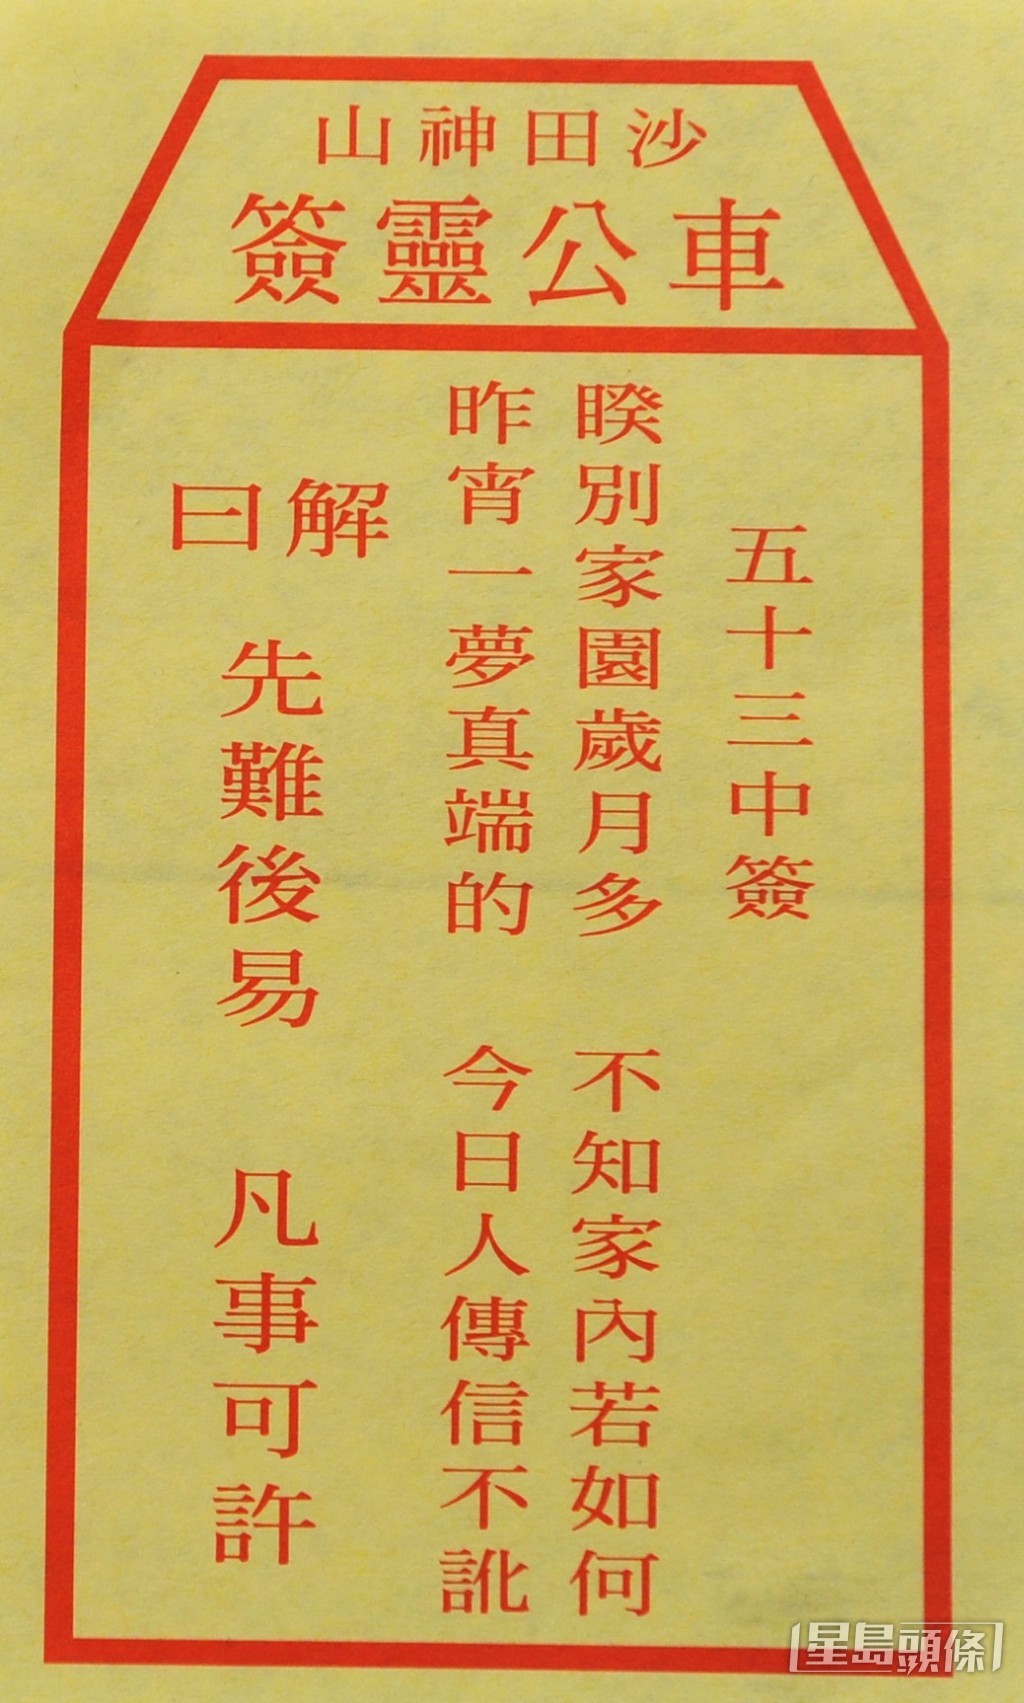 沙田神山
車公靈簽
五十三中簽
睽別家園歲月多 不知家內若如何
昨宵一夢真端的 今日人傳信不訛
解曰
先難後易 凡事可許
星島頭條